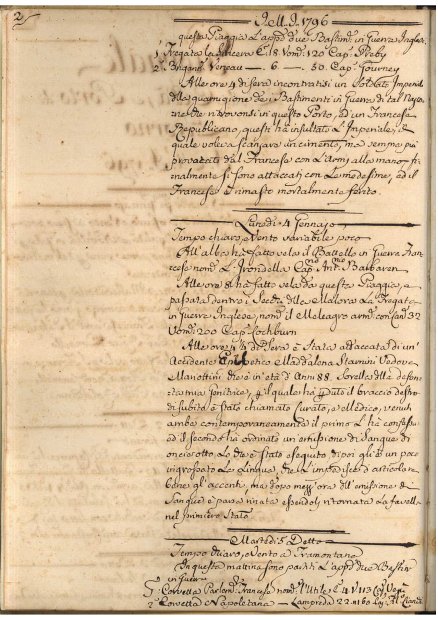 2
D. M. D. 1796
questa Piaggia L'appd due Bastimti in Guerra Inglesi
Fregata la C 18 Vond 120 Cap Preby
2 Brigantno Veneau — 6 — 50 Cap Gourney
Alle ore 4 di sera incontratisi un Soldato Imperial
della guarnigione de i Bastimenti in Guerra di tal Nazio
ne che ritrovonsi in questo Porto, ed un Francese
Repubblicano, questi ha insultato L'Imperiale, il
quale voleva scanzare un cimento, ma sempre più
provocato dal Francese con L'armi alla mano fi-
nalmente si sono attaccati con Le medesime, ed il
Francese è rimasto mortalmente ferito.
Lunedi 4 Gennajo
Tempo chiaro, e Vento variabile poco
All'alba ha fatto vela il Battello in Guerra Fran-
cese nomto L'Irondella Capno Ant. Barbaren
Alle ore 8 ha fatto vela da questa Piaggia, e
passata dentro i Secchi della Mallora La Fregata
in Guerra Inglese, nomta il Meleagro armta con Canni 32
Vomni 200 Cap Cochburn
Alle ore 4 ¾ di Sera è Stata attaccata di un'
Accidente Apopletico Maddalena Stamini Vedova
Mariottini che è in età d' Anni 88. Sorella della defon
ta mia Genitrice, per il quale ha perduto il braccio destro
di subito è stato chiamato Curato, e Medico, venuti
ambe contemporaneamente il primo L'hà confessata
ed il secondo ha ordinato un emissione di Sangue di
oncie otto, Le che è stato eseguito di poi gl'è un poco
ingrossato La Lingua, che L'impedisce d'articolare
bene gl'accenti, ma dopo mezz'ora dell'emissione di
Sangue è parsa rinata essendoli ritornata La favella
nel primiero Stato
Martedi 5 Detto
Tempo chiaro, e Vento a Tramontana
In questa mattina sono partiti L'appd due Bastimti
in Guerra
Corvetta Parlamto Francese nomta L'Utile C 4 V 113
2a Corvetta Napoletana — Lampreda 22 = 160